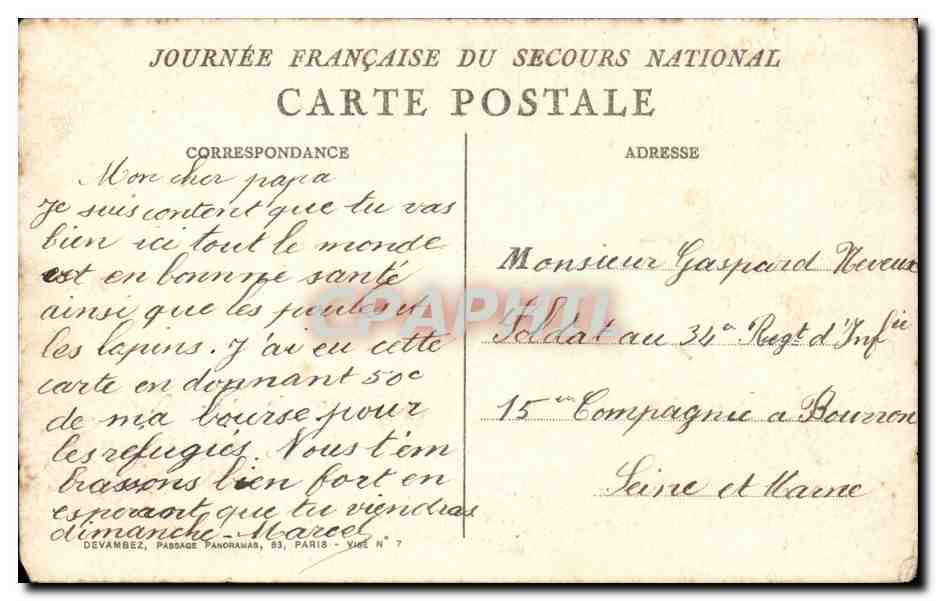 JOURNÉE FRANÇAISE DU SECOURS NATIONAL
CARTE POSTALE
CORRESPONDANCE
Mon cher papa
Je suis content que tu vas
bien ici tout le monde
est en bonnne santé
ainsi que les poules et
les lapins. J'ai eu cette
carte en donnant 50c
de ma bourse pour
les refugiés. Nous t'em
brassons bien fort en
esperant que tu viendras
dimanche - Marcel
DEVAMBEZ, PASSAGE PANORAMAS, 63, PARIS - VISÉ N° 7
ADRESSE
Monsieur Gaspard Neveux
Soldat au 34e Regt d'Infie
15em Compagnie a Bourron
Seine et Marne
CPAPHIL